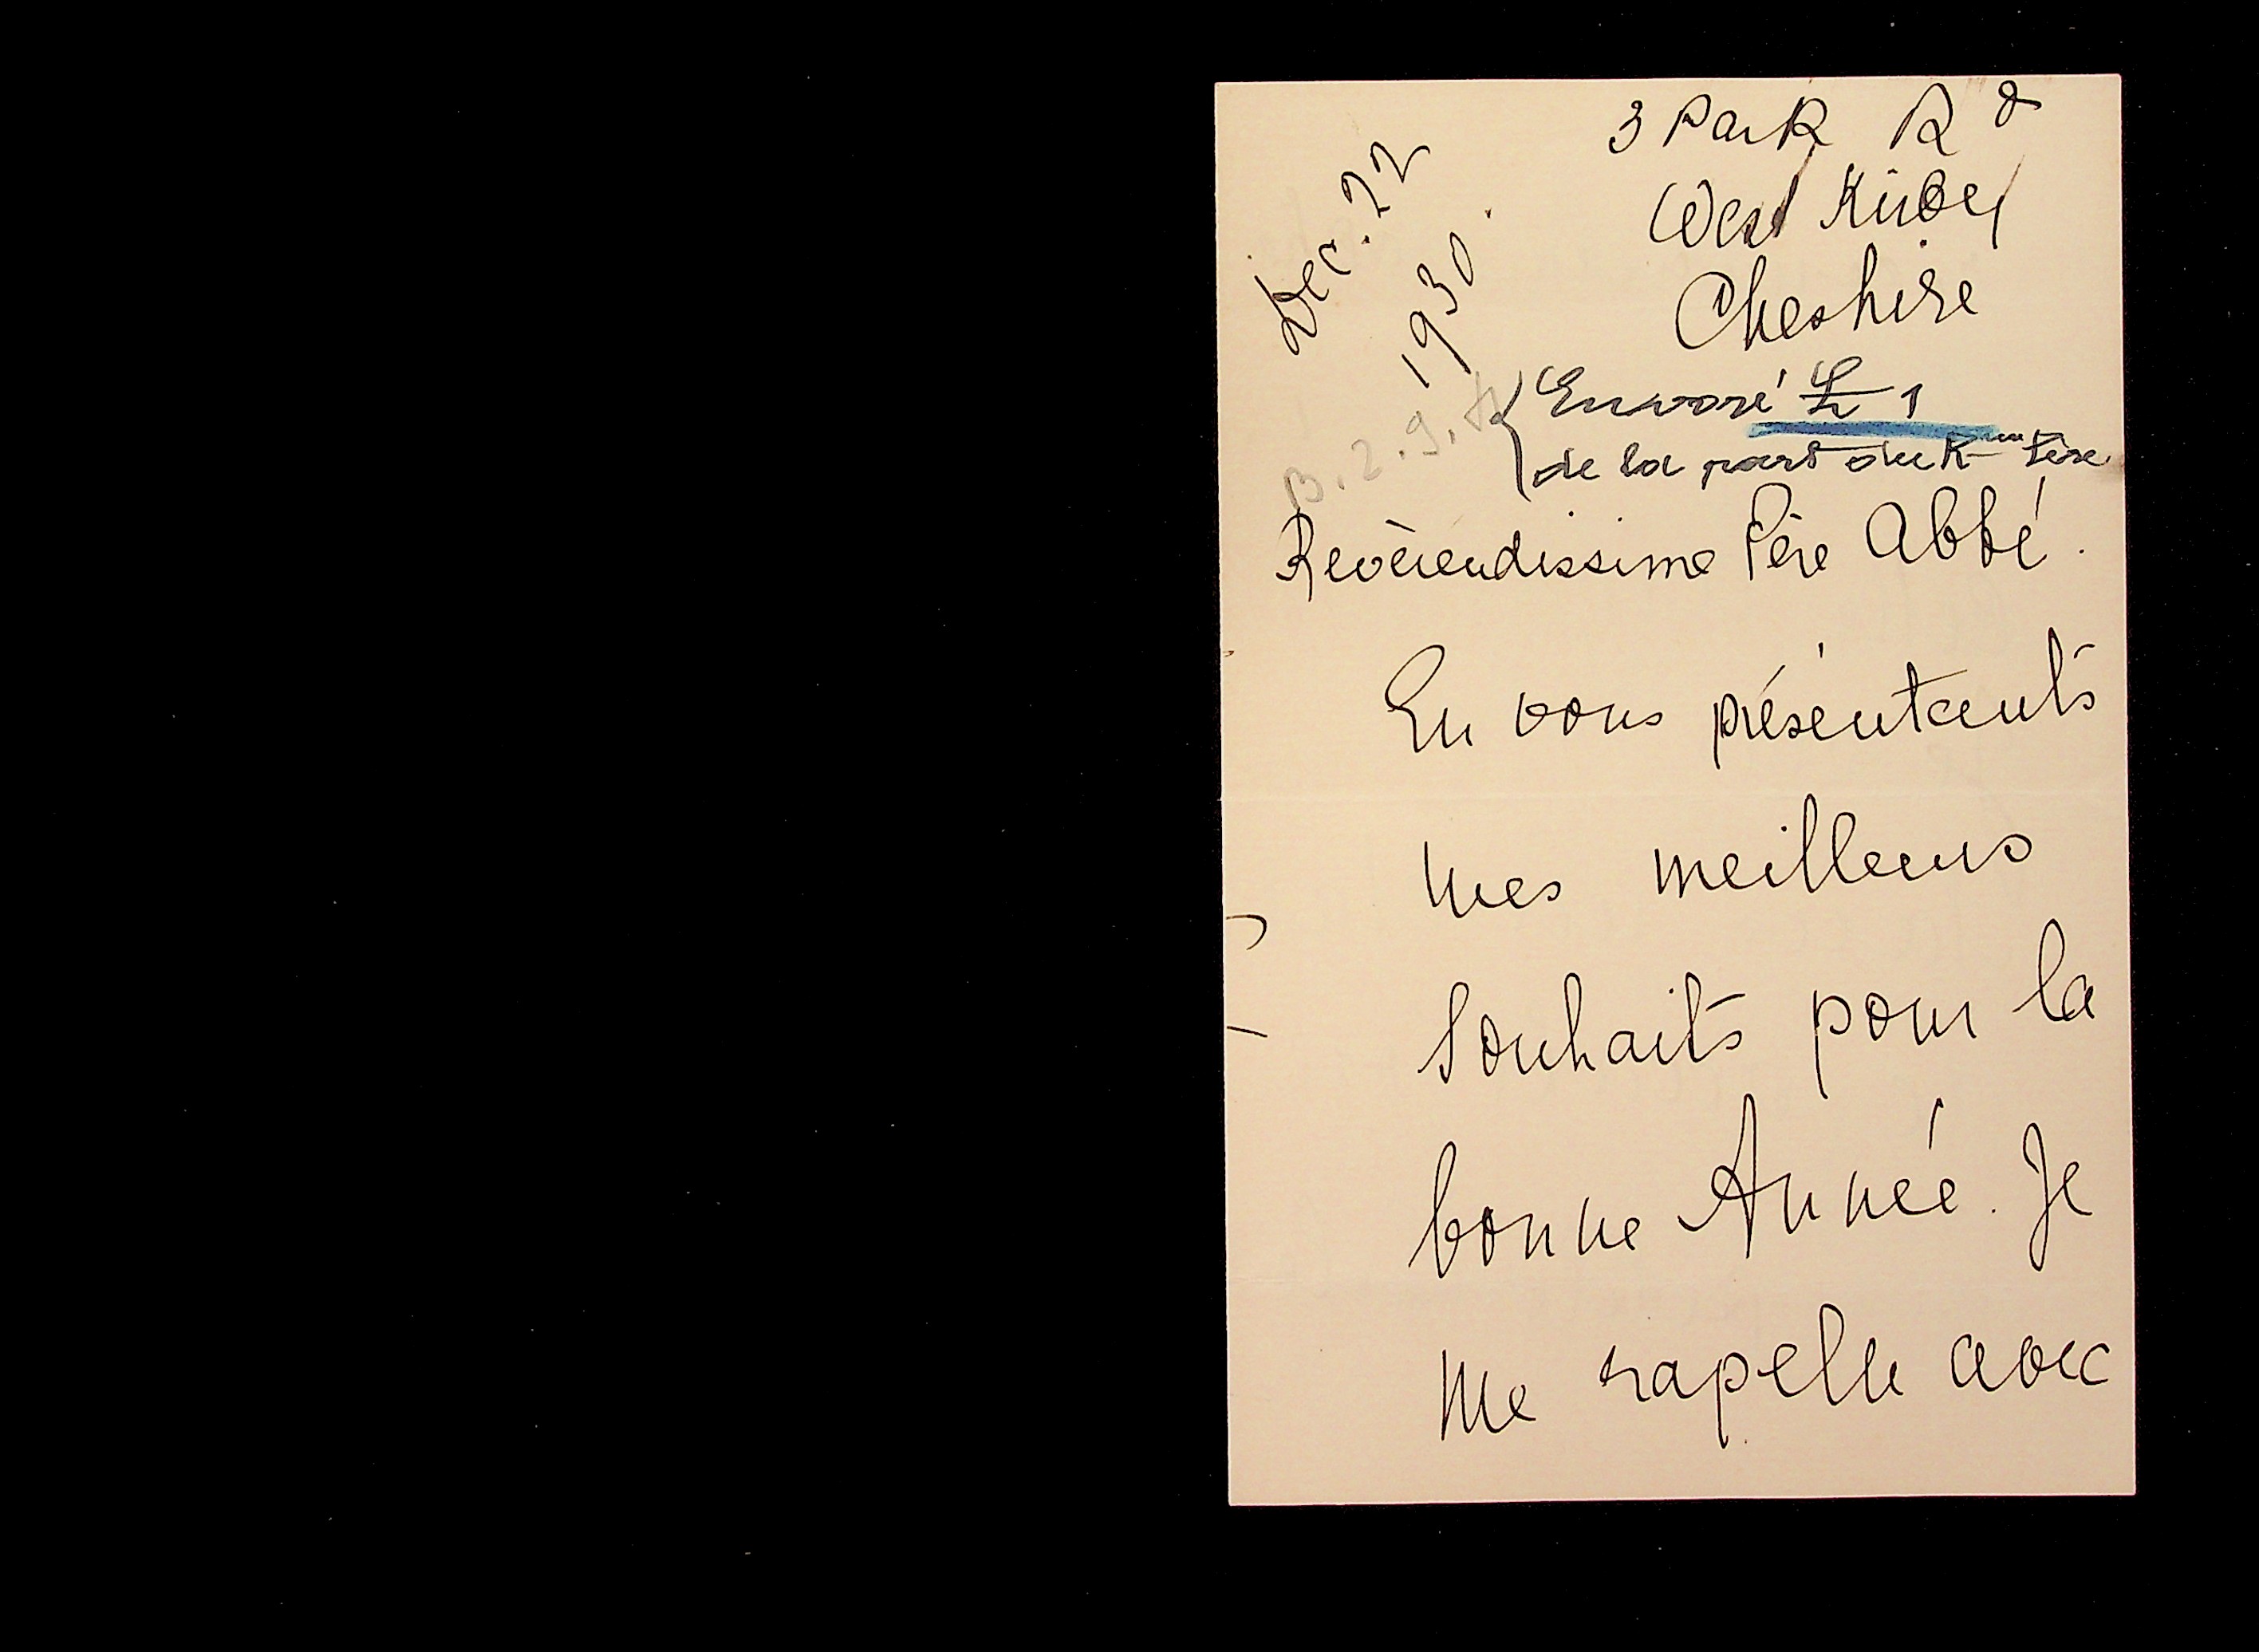 3 Park Rd
West Kirby
Cheshire
Dec. 22
1930.
Envoyé £ 1
de la part du Rme Père
B. 2. 9.
Revèrendissime Père Abbé.
En vous présentants
mes meilleurs
souhaits pour la
bonne Année. Je
me rapelle avec